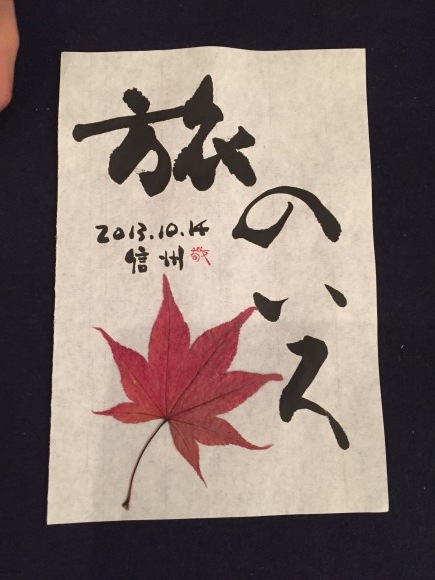 旅のいろ
2013.10.14
信州 敬